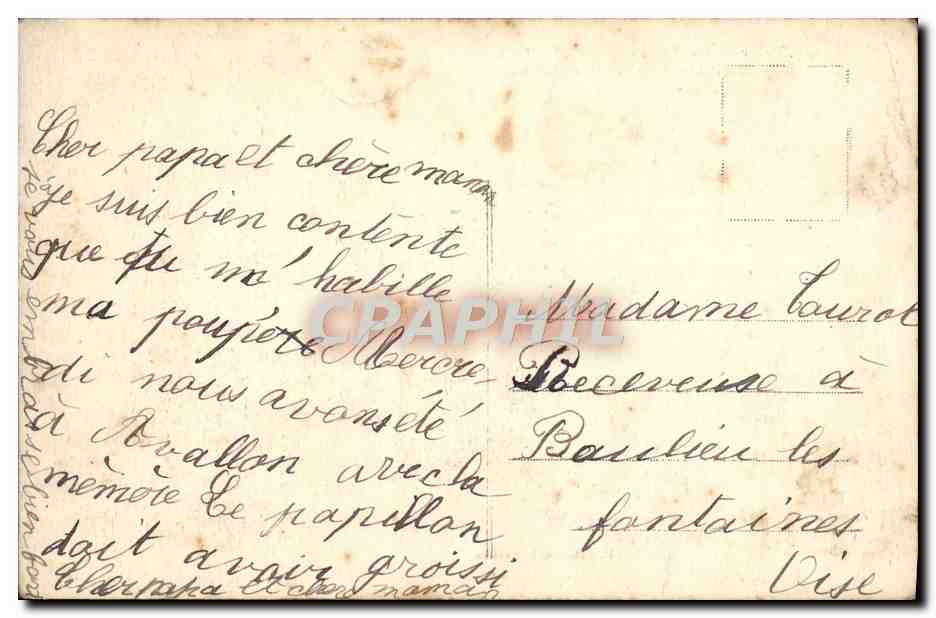 Cher papa et chère maman
je suis bien contente
que tu m'habille
ma poupée Mercre-
di nous avons été
à Avallon avec la
mèmère Le papillon
doit avoir groissi
Cher papa et chere maman
je vous embrasse bien
Madame Tourot
Receveuse à
Baulieu les
fontaines
Oise
CRAPHIL